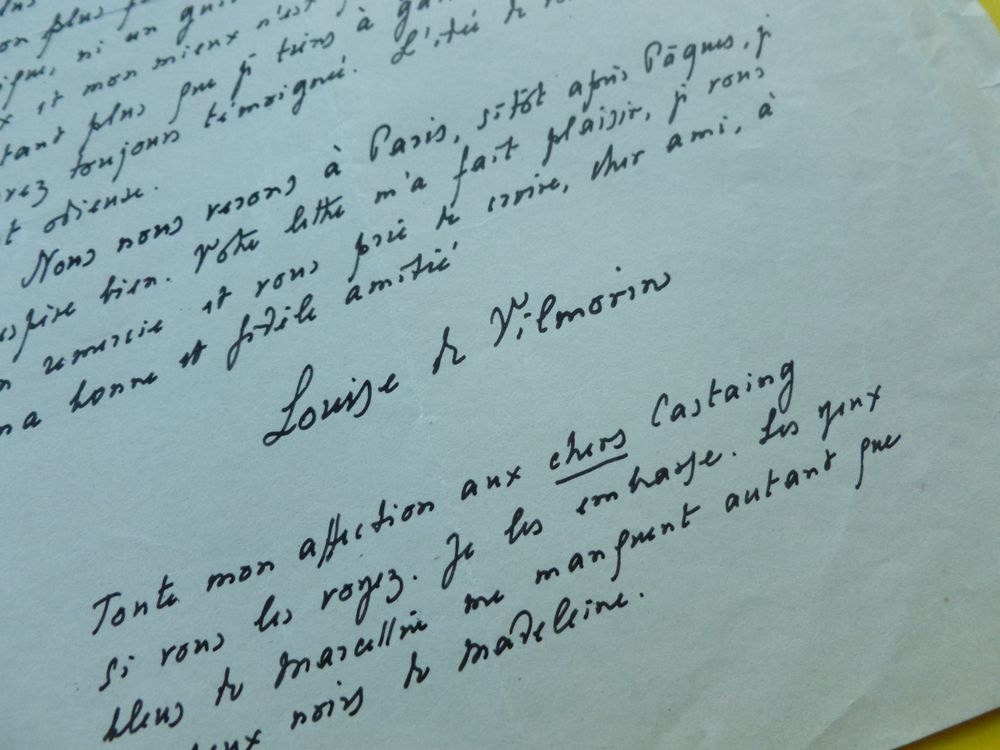 plus
ni un
x et mon mieux n'est
tant plus que je tiens à
avez toujours témoigné. L'été de
et odieuse.
Nous nous verons à Paris, sitôt après Pâques, j
espère bien. Votre lettre m'a fait plaisir, je vous
en remercie et vous prie de croire, cher ami, à
ma bonne et fidèle amitié
Louise de Vilmorin
Toute mon affection aux chers Castaing
si vous les voyez. Je les embrasse. Les yeux
bleus de Marcellin me manquent autant que
yeux noirs de Madeleine.